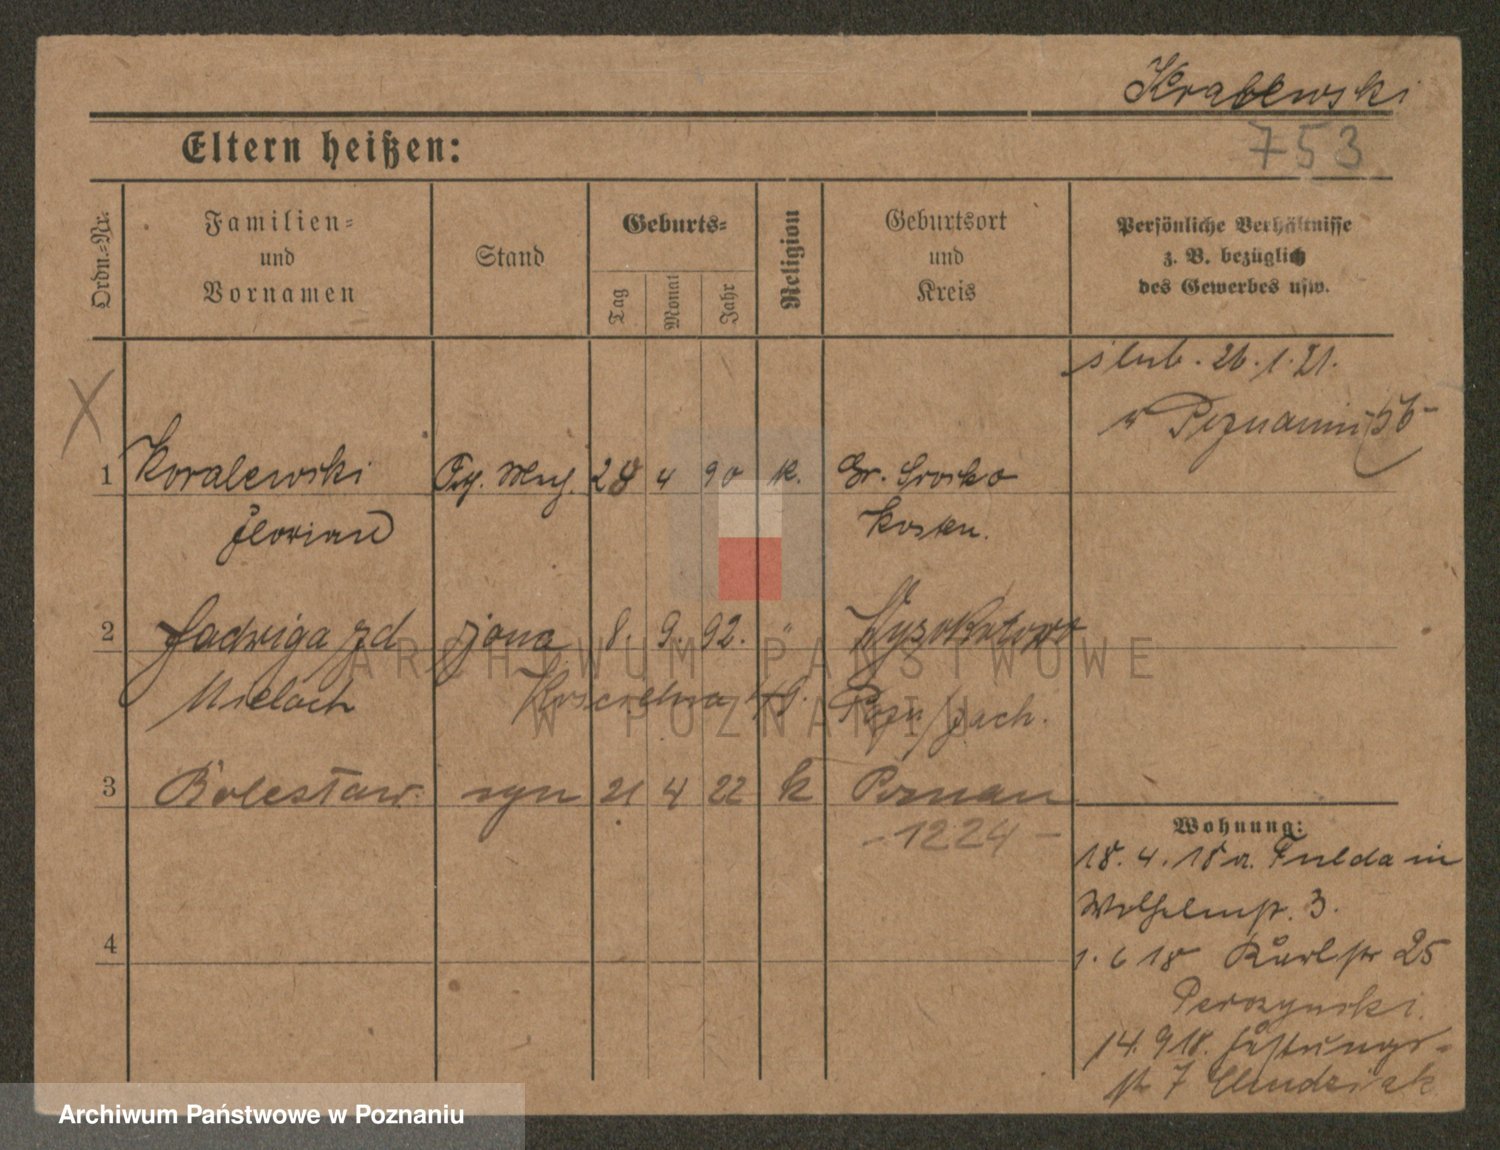 Kralewski
753
Eltern heißen:
Ordn.-Nr.
Familien-
und
Vornamen
Stand
Geburts-
Tag
Monat
Jahr
Religion
Geburtsort
und
Kreis
Persönliche Verhältnisse
z. B. bezüglich
des Gewerbes usw.
ślub. 26.1.21.
w Poznaniu
X
1 Koralewski 28 4 90 k. Gr.
Florian Kosten.
2 Jadwiga zd żona 8. 9. 92. " Wysokotowo
Mieloch Pozn/zach.
3 Bolesław syn 21 4 22 k Poznań
-1224-
4
Wohnung:
18. 4. 18 a. Fulda in
Wilhelmstr. 3.
1. 6 18 Karlstr 25
Perozynski.
14. 9 18. Festungs-
str 7
ARCHIWUM PAŃSTWOWE
W POZNANIU
Archiwum Państwowe w Poznaniu